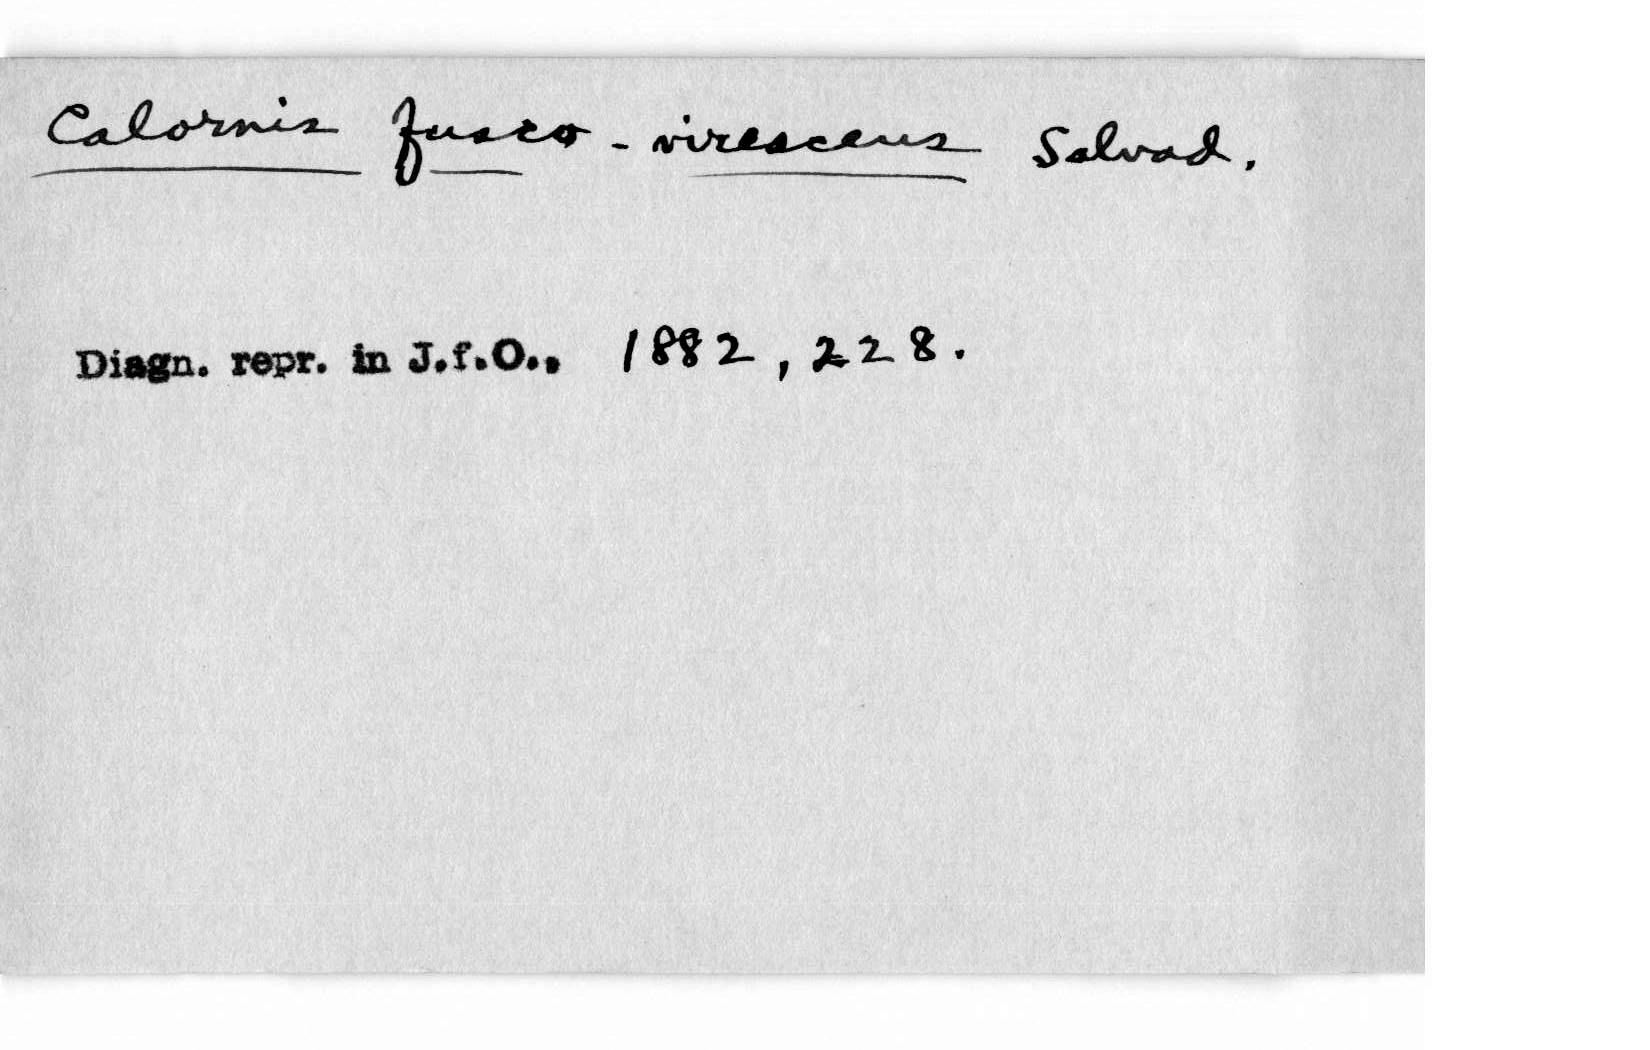 Calornis fusco-virescens Salvad.
Diagn. repr. in J.f.O., 1882, 228.